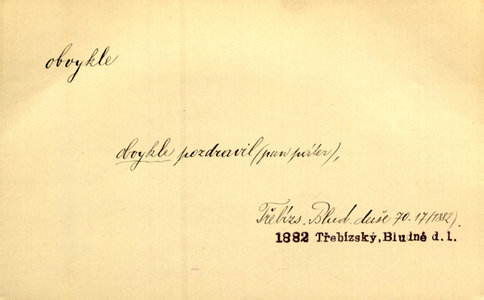 obvykle
obvykle pozdravil (pan páter),
Třebízs. Blud. duše 70.17 (1882).
1882 Třebízský, Bludné d. I.